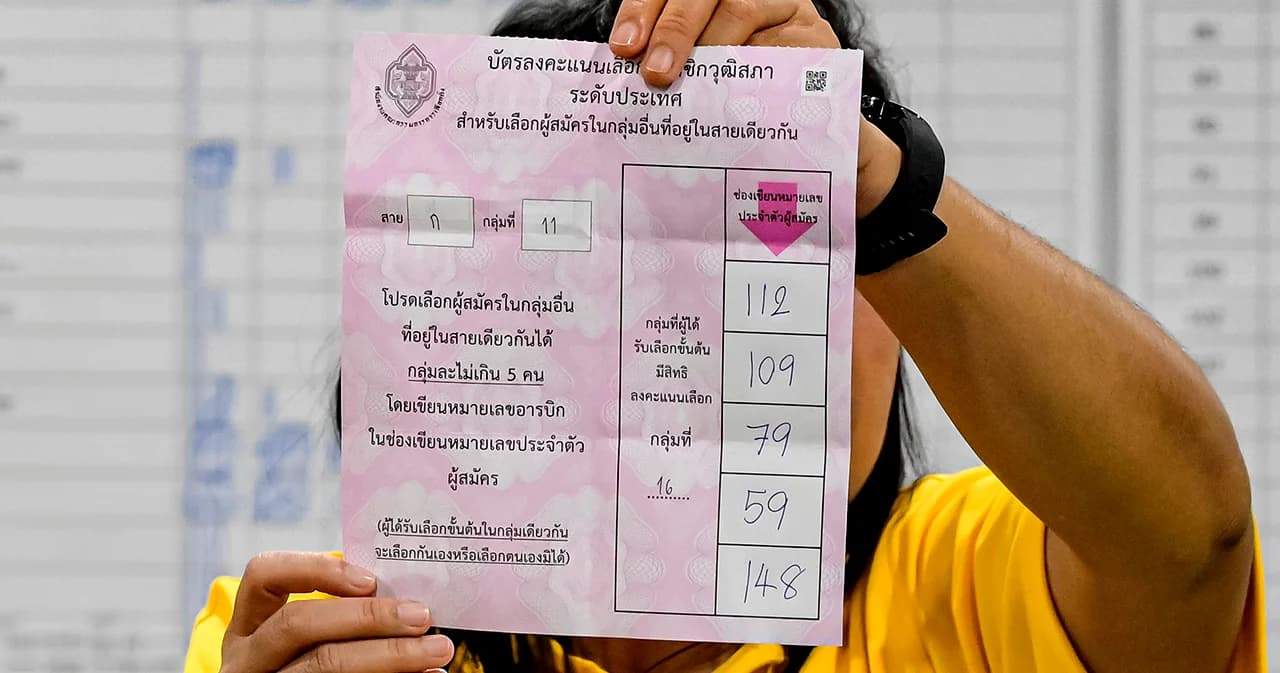 บัตรลงคะแนนเลือ ชิกวุฒิสภา
ระดับประเทศ
สำหรับเลือกผู้สมัครในกลุ่มอื่นที่อยู่ในสายเดียวกัน
สำนักงานคณะกรรมการการเลือกตั้ง
สาย ก กลุ่มที่ 11
โปรดเลือกผู้สมัครในกลุ่มอื่น
ที่อยู่ในสายเดียวกันได้
กลุ่มละไม่เกิน 5 คน
โดยเขียนหมายเลขอารบิก
ในช่องเขียนหมายเลขประจำตัว
ผู้สมัคร
(ผู้ได้รับเลือกขั้นต้นในกลุ่มเดียวกัน
จะเลือกกันเองหรือเลือกตนเองมิได้)
กลุ่มที่ผู้ได้
รับเลือกขั้นต้น
มีสิทธิ
ลงคะแนนเลือก
กลุ่มที่
16
ช่องเขียนหมายเลข
ประจำตัวผู้สมัคร
112
109
79
59
148